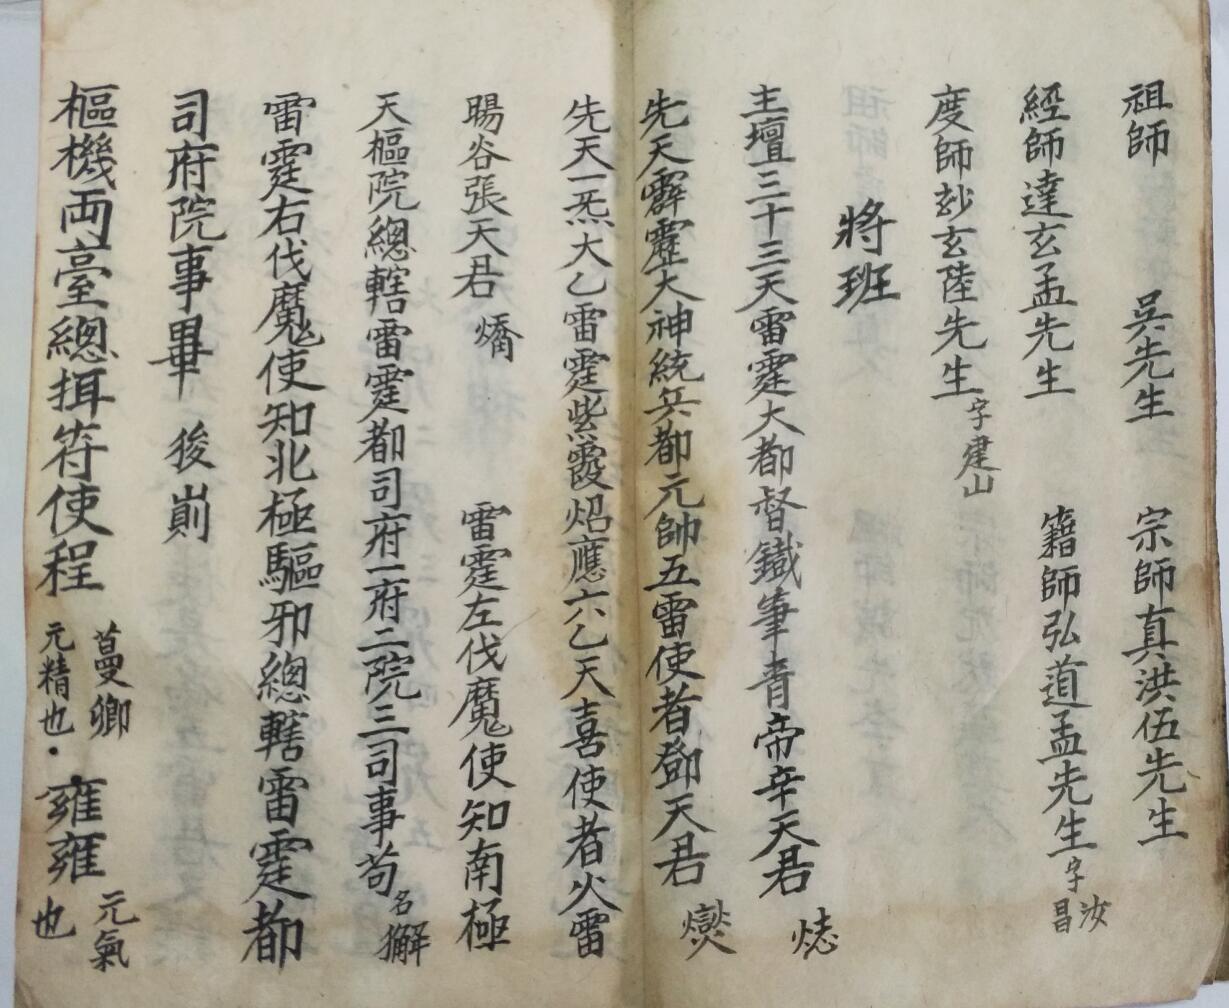 祖師 吳先生 宗師真洪伍先生
經師達玄孟先生 籍師弘道孟先生字汝昌
度師玅玄陸先生字建山
將班
主壇三十三天雷霆大都督鐵筆青帝辛天君
先天霹靂大神統兵都元帥五雷使者鄧天君
先天一炁大乙雷霆紫霞炤應六乙天喜使者火雷
暘谷張天君 燆 雷霆左伐魔使知南極
天樞院總轄雷霆都司府一府二院三司事苟名獬
雷霆右伐魔使知北極驅邪總轄雷霆都
司府院事畢 後
樞機両臺總揖符使程 蔓卿 元精也·雍雍 元氣也